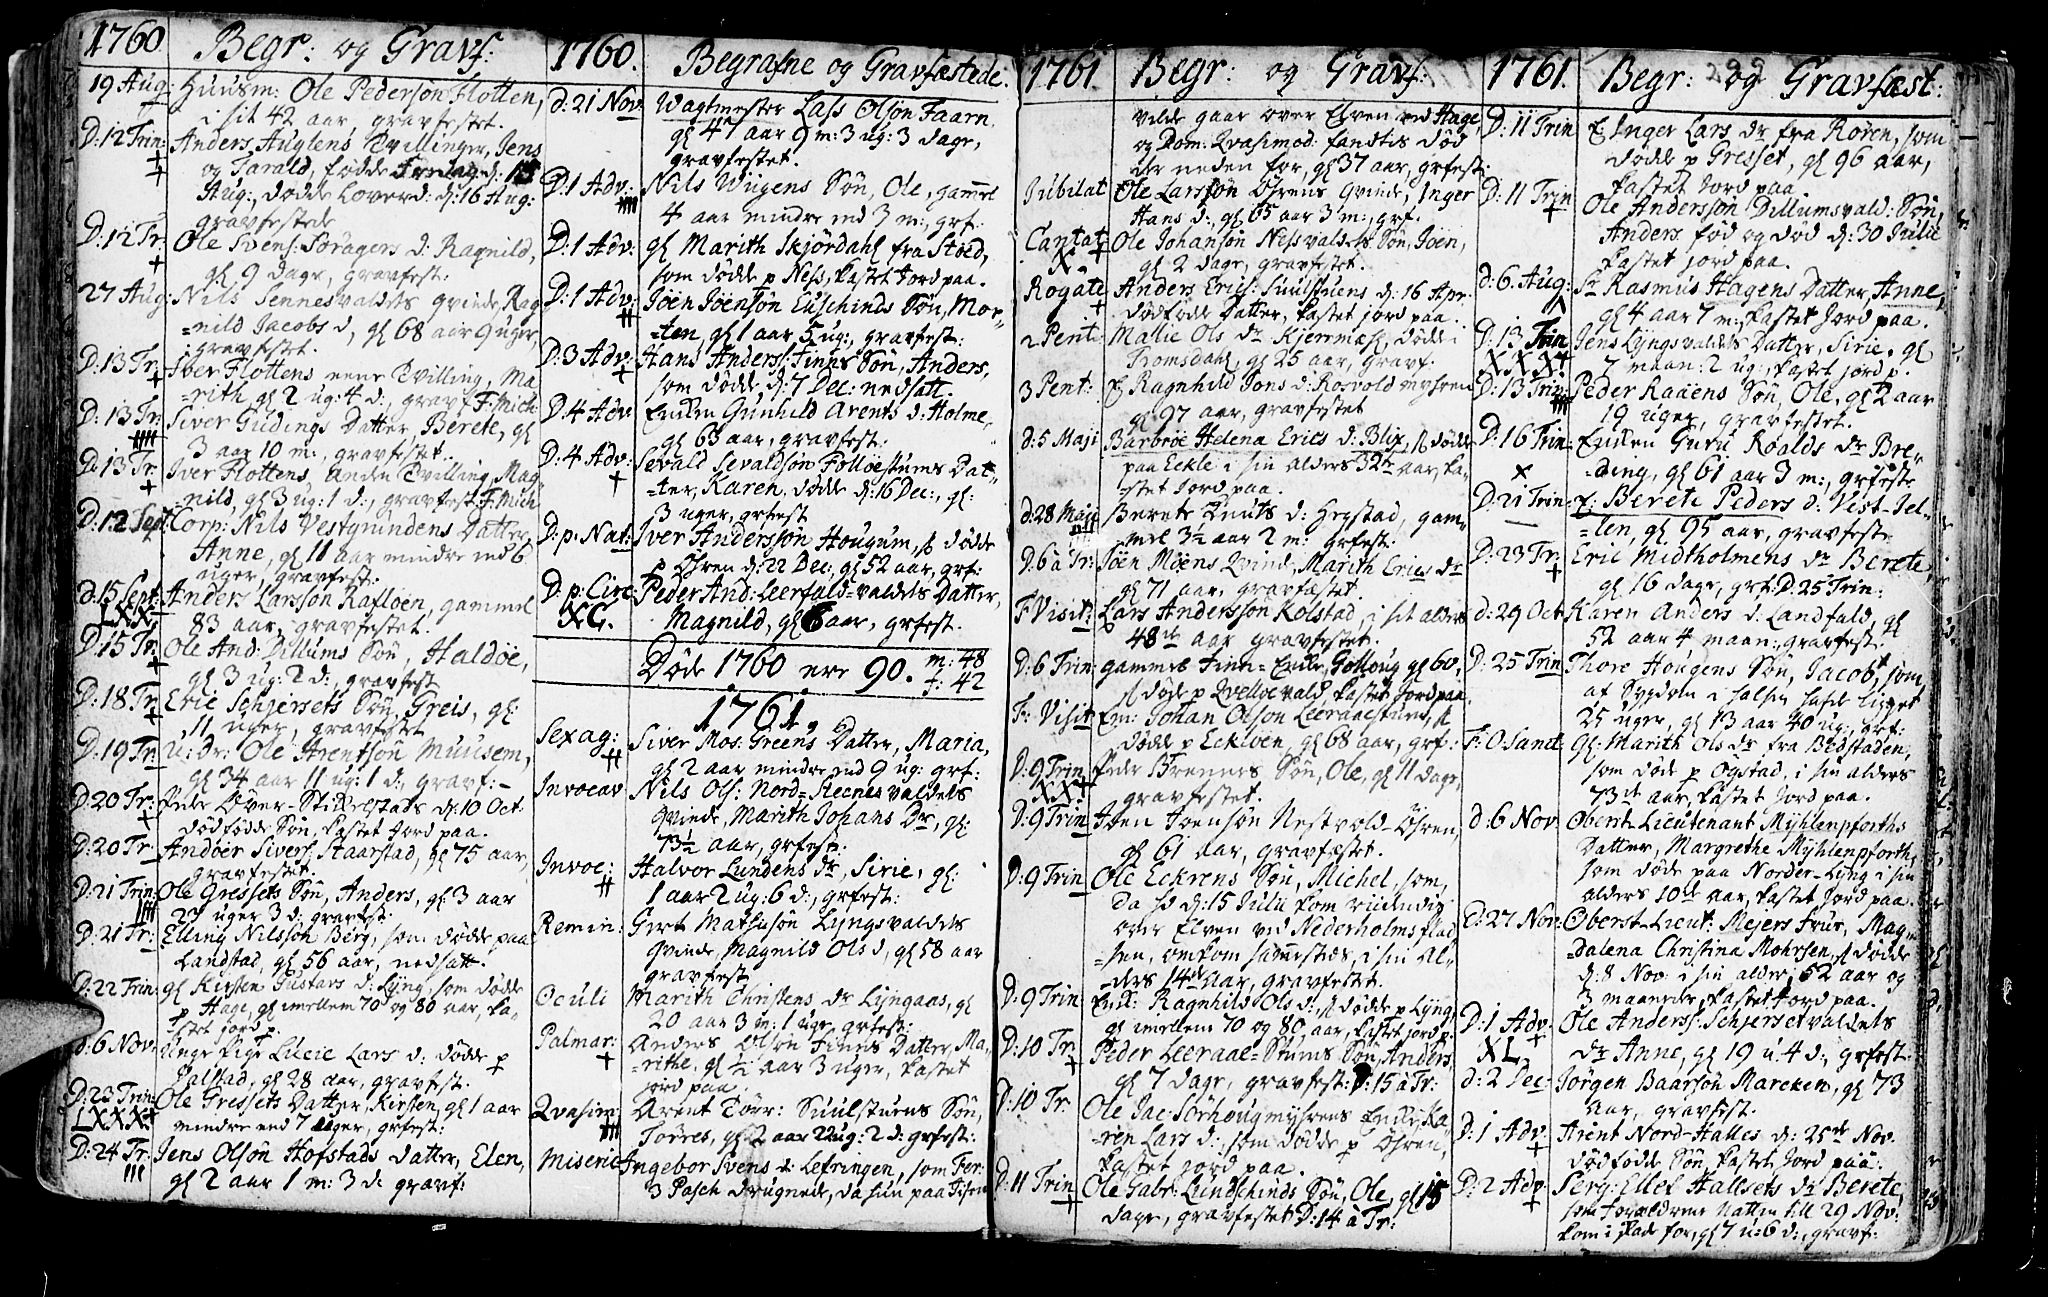 1760. Begr: og Gravf:
19 Aug: Huusm: Ole Pederson Flotten,
i sit 42 aar, gravfestet.
D:12 Trin: Anders Auglens Tvillinger, Jens
og Tarald, fødde d: 15
Aug:, døde Løverd: d: 16 Aug:
gravfestede
D:12 Tr: Ole Svens: Soragers d: Ragnild,
gl 9 dage, gravfest:
27 Aug: Nils Sennesvaldets qvinde, Rag
=nild Jacobs d, gl 68 aar 9 uger,
gravfestet.
D:13 Tr: Iver Flottens eene Tvilling, Ma
=rith gl 2 ug: 4 d:, gravf. F. Mich:
D:13 Tr: Siver Gudings Datter, Berete, gl
3 aar 10 m:, gravfestet.
D:13 Tr: Iver Flottens anden Tvilling, Mag
=nild, gl 3 ug: 1 d:, gravfest. F. Mich
D:12 Sept Corp: Nils Vestgrundens Datter
Anne, gl 11 aar mindre end 6
uger, gravfest:
d:15 Sept: Anders Larsson Rafloen, gammel
LXX. 83 aar, gravfestet.
D:15 Tr: Ole And: Dillums Søn, Haldoe,
gl 3 ug: 2 d:, gravfest
D:18 Tr: Eric Schjersets Søn, Greis, gl:
11 uger, gravfestet
D:19 Tr: U: dr: Ole Arentsøn Muusem,
gl 34 aar 11 ug: 1 d:, gravf:
D:20 Tr: Peder Over-Sticklestads d: 10 Oct.
dødfødde Søn, kastet Jord paa.
D:20 Tr: Andoer Sivers: Staarstad, gl 75 aar,
gravfestet.
D:21 Trin: Ole Gressets Søn, Anders, gl 3 aar
23 uger 3 d: gravfest:
D:21 Tr: Elling Nilssøn Berg, som dødde paa
Landstad, gl 56 aar, nedsatt.
D:22 Trin: gl Kirsten Gustavs d: Lyng, som dødde
p Hage, gl imellem 70 og 80 aar, ka-
stet jord p.
d:6 Nov: Unge Pige Lucie Lars d: dødde p
Palstad, gl 28 aar, gravfest.
D:23 Trin: Ole Gressets Datter, Kirsten, gl 1 aar
LXXX. mindre end 7 uger, grfest:
D:24 Tr: Jens Olsøn Hofstads datter, Elen,
gl 2 aar 1 m: 3 d: gravf:
1760. Begrafne og Gravfæstede.
d:21 Nov. Wagtmester Lass Olson Faarn
gl 47 aar 9 m: 3 ug: 3 dage,
gravfestet.
D:1 Adv: Nils Wiigens Søn, Ole, gammel
4 aar mindre end 3 m:, grf:
D:1 Adv: gl Marith Skjørdahl fra Stoed,
som dødde p Ness, kastet Jord paa.
D:1 Adv: Joen Joensøn Euschinds Søn, Mor-
=ten, gl 1 aar 5 ug:, gravfest:
D:3 Adv: Hans Anders: Finnes Søn, Anders,
som dødde d: 7 Dec: nedsatt.
D:4 Adv: Enken Gunhild Arents d: Holme,
gl 63 aar, gravfest:
D:4 Adv: Sevald Sevaldsøn Folloestuens Dat-
=ter, Karen, dødde d: 16 Dec:, gl:
3 uger, grfest
D:p:Nat: Iver Anderssøn Hougum, s dødde
p Øhren d: 22 Dec:, gl 52 aar, grf:
D.p:Circ: Peder And: Leerfald=valdets Datter,
XC. Magnild, gl 6 aar, grfest.
Døde 1760 ere 90. m: 48
f: 42
1761.
Sexag: Siver Mos: Greens Datter, Maria,
gl 2 aar mindre end 9 ug: grf:
Invocav Nils Ols: Nord=Steenesvaldets
Qvinde, Marith Johans Dr, gl:
73½ aar, grfest.
Invoc: Halvor Lundens dr, Sirie, gl:
1 aar 2 ug: 6 d:, grfest:
Remin: Gert Mathisøn Lyngsvaldets
Qvinde, Magnild Ols d, gl 58 aar
gravfest
Oculi Marith Christens dr Lyngaas, gl
20 aar 3 m: 1 uge, grfest:
Palmar: Anders Olsøn Finnes Datter, Ma-
=rithe, gl ½ aar 3 uger, kastet
jord paa.
Qvasim: Arent Torr: Suulstuens Søn,
Torres, gl 2 aar 22 ug: 2 d: grfest:
Miseric: Ingebor Svens d: Lefringen, som Fer:
3 Pasch drugnede, da hun paa Iisen
1761. Begr: og Gravf:
vilde gaar over Elven ved Hage,
og Dom: Qvasimod: fandtis død
der neden for, gl 37 aar, grfest.
Jubilat Ole Larssøn Øhrens Qvinde, Inger
Hans d:, gl 65 aar 3 m:, grf.
Cantat Ole Johansøn Nessvaldets Søn, Joen,
X. gl 2 dage, gravfestet.
Rogate Anders Erics: Suulstuens d: 16 Apr:
dødfødde Datter, kastet jord paa.
2 Pent: Malie Ols dr Kjerrmæl, dødde i
Tromsdahl, gl 25 aar, gravf:
3 Pent: E. Ragnhild Jons d: Rosvold myhren
gl 97 aar, gravfestet
d:5 Maji Barbroe Helena Erics d: Blix, s dødde
paa Eckle i sin alders 32te aar, ka-
=stet Jord paa.
d:28 Maji Berete Knuts d: Hegstad, gam-
mel 3½ aar 2 m: grfest.
D:6 à Tr: Joen Moens Qvinde, Marith Erics dr
gl 71 aar, gravfæstet.
F. Visit: Lars Anderssøn Kolstad, i sit alders
48de aar gravfestet.
D:6 Trin: gammel Finn=Enke, Golloug gl 60,
s døde p Qvelloevald, kastet Jord paa.
F: Visit Em: Johan Olson Leeraaestuen, s
dødde p Ecklöen, gl 68 aar, grf:
D:9 Trin Peder Brennes Søn, Ole, gl 11 dage,
XX gravfestet.
D:9 Trin: Joen Joensøn Nestvold=Øhren,
gl 61 aar, gravfæstet.
D:9 Trin Ole Eckrens Søn, Michel, som,
da hd d: 15 Julii kom riidendis
over Elven ved Nederholms flad
=sen, omkom sammestæds, i sin al-
=ders 14de aar, gravfestet.
D:9 Trin Enk: Ragnhild Ols d:, s dødde p Lyng
gl imellem 70 og 80 aar, kastet jord p:
D:10 Tr: Peder Leeraae=Stuens Søn, Anders
gl 7 dage, gravfest: D: 15 à Tr:
D:10 Tr. Ole Jac: Sørhougmyhrens Enke, Ka-
=ren Lars d:, som dødde p Øhren,
kastet jord paa.
D:11 Trin Ole Gabr: Lundschinds Søn, Ole, gl 15
dage, gravfestet D: 14 à Tr:
1761. Begr: og Gravfæst:
299
D:11 Trin E. Inger Lars dr fra Røren, som
dødde p Gresset, gl 96 aar,
kastet Jord paa
D:11 Trin Ole Anderssøn Dillumsvald: Søn,
Anders fød og død d: 30 Julii
kastet jord paa.
d:6 Aug: Sr Rasmus Hagens Datter, Anne,
gl 4 aar 7 m:, kastet Jord paa.
D:13 Trin Jens Lyngsvaldets Datter, Sirie, gl
XXX. 7 maan: 2 ug:, kastet jord p.
D:13 Trin: Peder Raaens Søn, Ole, gl 2 aar
19 uger, gravfestet.
D:16 Trin: Enken Guru Roalds dr Bre-
=ding, gl 61 aar 3 m:, grfeste
D:21 Trin: E: Berete Peders d: Vest-Jel-
=len, gl 95 aar, gravfest
D:23 Tr: Eric Midtholmens dr Berete,
gl 16 dage, grf: D. 25 Trin:
d:29 Oct Karen Anders d: Landfald, gl
52 aar 4 maan:, gravfest.
D:25 Trin Thore Hougens Søn, Jacob, som
af Sygdom i halsen hafde ligget
25 uger, gl 13 aar 40 ug:, grf:
F: O Sanct. Gl: Marith Ols dr fra Bodstaden,
som døde p Øgstad, i sin alders
73de aar, kastet Jord paa.
d:6 Nov Oberst-Lieutenant Mÿhlenpforths
datter, Margrethe Mÿhlenpforth,
som døde paa Norder-Lyng i sin
alders 10de aar, kastet Jord paa.
D:27 Nov: Oberst-Lieut: Mejers Frue, Mag-
=dalena Christina Mohrsen, s dødde
d: 8 Nov: i sin alder 52 aar og
3 maaneder, kastet Jord paa.
D:1 Adv: Ole Anderss: Schjersetvaldets
XL. dr Anne, gl 19 u. 4 d:, grfest.
d:2 Dec: Jørgen Baarsøn Marcken, gl 73
aar, gravfest.
D:1 Adv Arent Nord-Halles d: 25de Nov.
dødfødde Søn, kastet Jord paa.
D:2 Adv Serg: Ellef Hallsets dr Berete,
som Forældrene Natten till 29 Nov.
kom i skade for, gl 7 u: 6 d:, gravf: